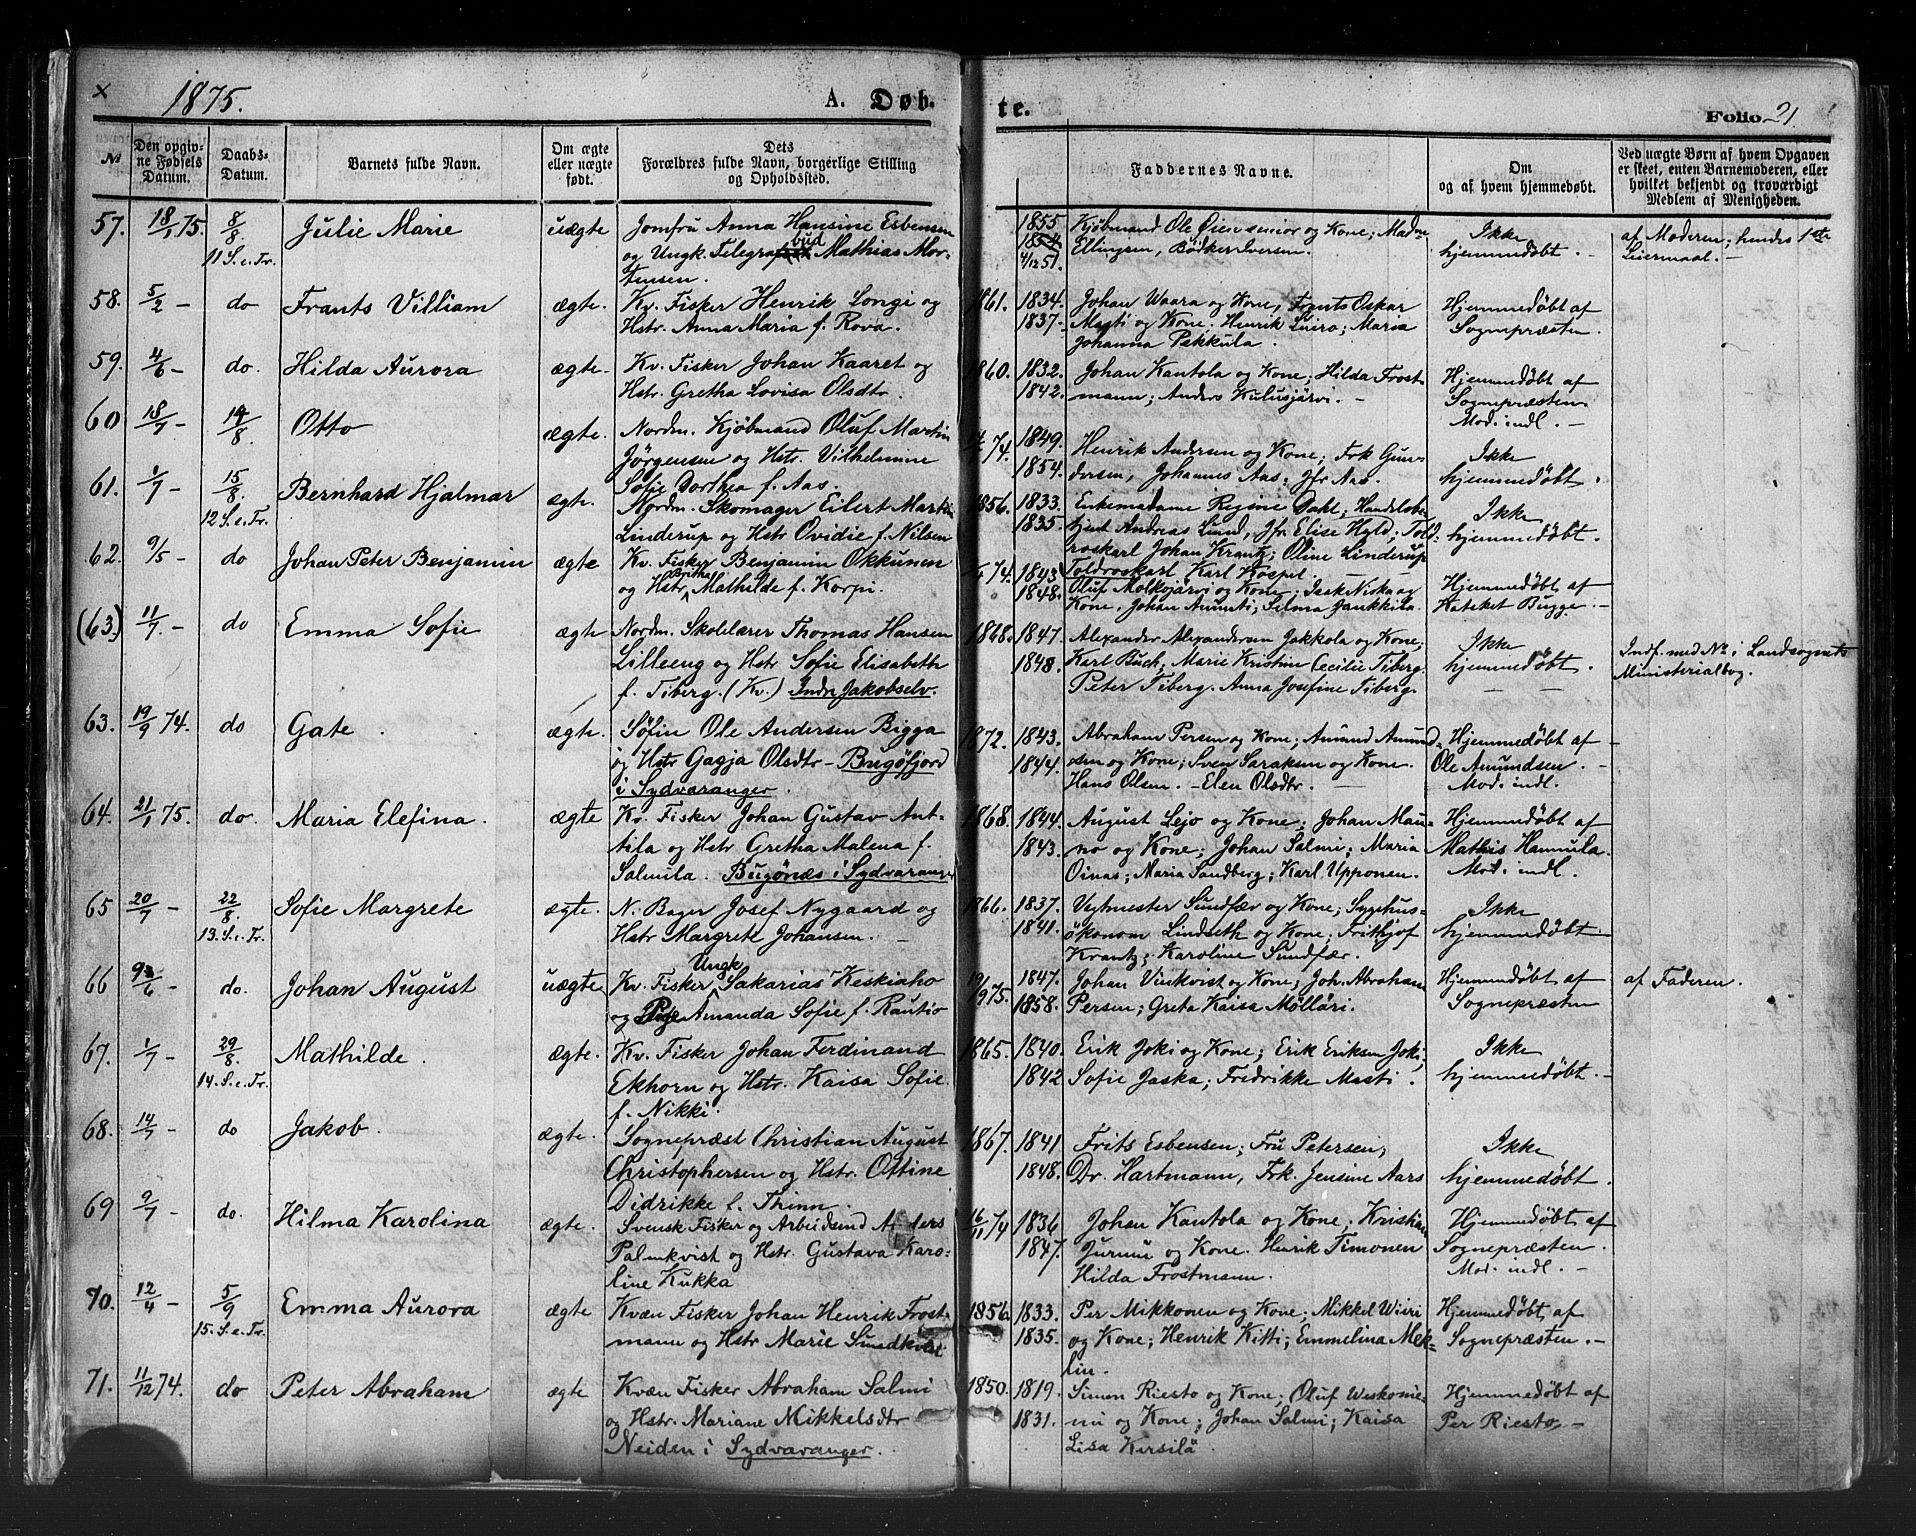 × 1875. A. Døb.
te. Folio 21.
№ | Den opgivne Fødsels Datum. | Daabs-Datum. | Barnets fulde Navn. | Om ægte eller uægte født. | Dets Forældres fulde Navn, borgerlige Stilling og Opholdssted. | Faddernes Navne. | Om og af hvem hjemmedøbt. | Ved uægte Børn af hvem Opgaven er skeet, enten Barnemoderen, eller hvilket bekjendt og troværdigt Medlem af Menigheden.
57. 18/1 75. 8/8 Julie Marie uægte Jomfru Anna Hansine Esbensen 1855 Kjøbmand Ole Øien senior og Kone; Madme Ikke af Moderen; hendes 1ste
11 S. e. Tr. og Ungk. Telegrafbud Mathias Mor- 4/12 51. Ellingsen, Bødker Iversen. hjemmedøbt. - Leiermaal. -
tensen.
58. 5/2 - do Frants Villiam ægte. Kv. Fisker Henrik Longi og 1861. 1834. Johan Waara og Kone, Frants Oskar Hjemmedøbt af
Hstr. Anna Maria f. Rova. 1837. Masti og Kone; Henrik Luiro; Maria Sognepræsten.
Johanna Pekkula.
59. 4/6 - do. Hilda Aurora ægte. Kv. Fisker Johan Kaaret og 1860. 1832. Johan Kantola og Kone; Hilda Frost- Hjemmedøbt af
Hstr. Gretha Lovisa Olsdtr. 1842. mann; Anders Kulusjärvi. - Sognepræsten.
Mod. indl. -
60 18/7 - 14/8. Otto ægte. Nordm. Kjøbmand Oluf Martin 74. 1849. Henrik Andersen og Kone; Frk Gun- Ikke
Jörgensen og Hstr. Vilhelmine 1854. dersen, Johannes Aas; Jfr Aas. hjemmedøbt.
Sofie Dorthea f. Aas.
61. 1/7 - 15/8. Bernhard Hjalmar ægte. Nordm. Skomager Eilert Martin 1856. 1833. Enkemadame Regine Dahl; Handelsbe- Ikke
12 S. e. Tr. Linderup og Hstr Ovidie f. Nilsen 1835. tjent Andreas Lund, Jfr Elise Hyld, Told- hjemmedøbt.
roskarl Johan Krantz; Oline Linderup
Toldroskarl Karl Kospel.
62. 9/5 - do Johan Peter Benjamin ægte Kv. Fisker Benjamin Okkunen 74. 1843 Oluf Molkojärvi og Kone; Isak Niska og Hjemmedøbt af
og Hstr Britha Mathilde f. Korpi. 1848. Kone, Johan Anunti; Selma Jankkila. Kateket Bugge. -
(63.) 11/7. - do Emma Sofie ægte Nordm. Skolelærer Thomas Hansen 1868. 1847. Alexander Alexandersen Jakkola og Kone; Ikke Indf. med No i Landsognets
Lilleeng og Hstr Sofie Elisabeth 1848. Karl Buch, Marie Kristine Cecilie Tiberg. hjemmedøbt. Ministerialbog.
f. Tiberg. (Kv.) Indre Jakobselv. Peter Tiberg. Anna Josefine Tiberg. -
63. 19/9 74. do Gate ægte. Söfin Ole Andersen Bigga 1872. 1843. Abraham Persen og Kone; Amund Amund- Hjemmedøbt af -
og Hstr Gagja Olsdtr - Bugöfjord 1844. sen og Kone; Sven Saraksen og Kone. Ole Amundsen. -
i Sydvaranger. Hans Olsen. - Elen Olsdtr. - Mod. indl.
64. 21/1 75. do. Maria Elefina. ægte Kv. Fisker Johan Gustav Ant- 1868. 1844. August Lejo og Kone; Johan Mau- Hjemmedøbt af
tila og Hstr Gretha Malena f. 1843. no og Kone; Johan Salmi; Maria Mathis Hannula.
Salmila. Bugönæs i Sydvaranger Oinas; Maria Sandberg; Karl Upponen. Mod. indl.
65 20/7 - 22/8. Sofie Margrete ægte. N. Bager Josef Nygaard og 1866. 1837. Veimester Sundfær og Kone; Sygehus- Ikke
13. S. e. Tr. Hstr Margrete Johansen. - 1841. økonom Lindseth og Kone; Frithjof hjemmedøbt.
Krantz; Karoline Sundfær.
66 /6 - do. Johan August uægte Kv. Fisker Ungk. Sakarias Keskiaho 75. 1847. Johan Vinkvist og Kone; Joh. Abraham Hjemmedøbt af af Faderen.
og Pige Amanda Sofie f. Rautio 1858. Persen; Greta Kaisa Möllari. Sognepræsten
67. 1/7 - 29/8. Mathilde. ægte. Kv. Fisker Johan Ferdinand 1865. 1840. Erik Joki og Kone; Erik Eriksen Joki; Ikke
14. S. e. Tr. Ekhorn og Hstr. Kaisa Sofie 1842 Sofie Jaska; Fredrikke Masti. hjemmedøbt. -
f. Nikki.
68. 14/7 - do Jakob. ægte. Sognepræst Christian August 1867. 1841 Frits Esbensen; Fru Petersen; Ikke
Christophersen og Hstr. Ottine 1848. Dr. Hartmann, Frk. Jensine Aars hjemmedøbt.
Didrikke f. Thinn.
69 9/7 - do. Hilma Karolina ægte. Svensk Fisker og Arbeidsmd Anders 16/11 74 1836 Johan Kantola og Kone; Kristian Hjemmedøbt af
Palmkvist og Hstr. Gustava Karo- 1847. Jurmu og Kone. Henrik Timonen Sognepræsten.
line Kukka Hilda Frostmann. Mod. indl. -
70. 12/4 - 5/9 Emma Aurora ægte Kvæn Fisker Johan Henrik Frost- 1856. 1833. Per Mikkonen og Kone; Mikkel Wiiri Hjemmedøbt af
15. S. e. Tr. mann og Hstr Marie Sundkvist 1835. og Kone; Henrik Kitti; Emmelina Mek- Sognepræsten. -
lin.
71. 11/12 74. do Peter Abraham ægte Kvæn Fisker Abraham Salmi 1850. 1819. Simon Riesto og Kone; Oluf Weskonie- Hjemmedøbt af
og Hstr. Mariane Mikkelsdtr 1831. mi og Kone; Johan Salmi; Kaisa Per Riesto. -
Neiden i Sydvaranger. Lisa Kersilä